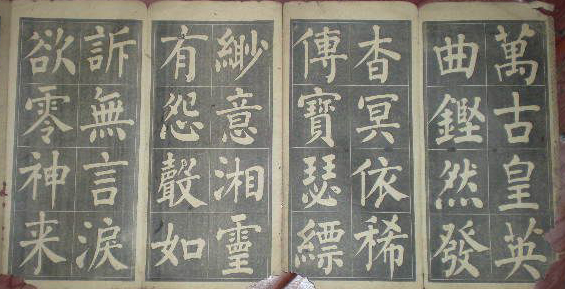 萬古皇英
曲鏗然發
杳冥依稀
傳寶瑟縹
緲意湘靈
有怨聲如
訴無言淚
欲零神来